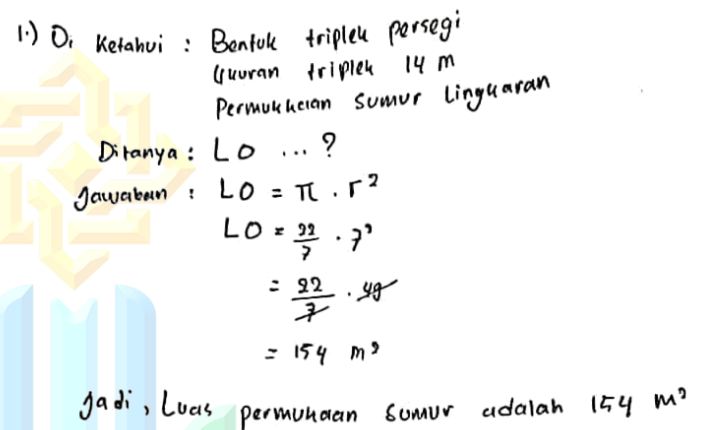 1.) Di Ketahui : Bentuk triplek persegi
Ukuran triplek 14 m
Permukkaan Sumur Lingkaran
Ditanya : LO ... ?
Jawaban : LO = π . r²
LO = 22/7 . 7²
= 22/7 . 49
= 154 m²
Jadi, Luas permukaan sumur adalah 154 m²